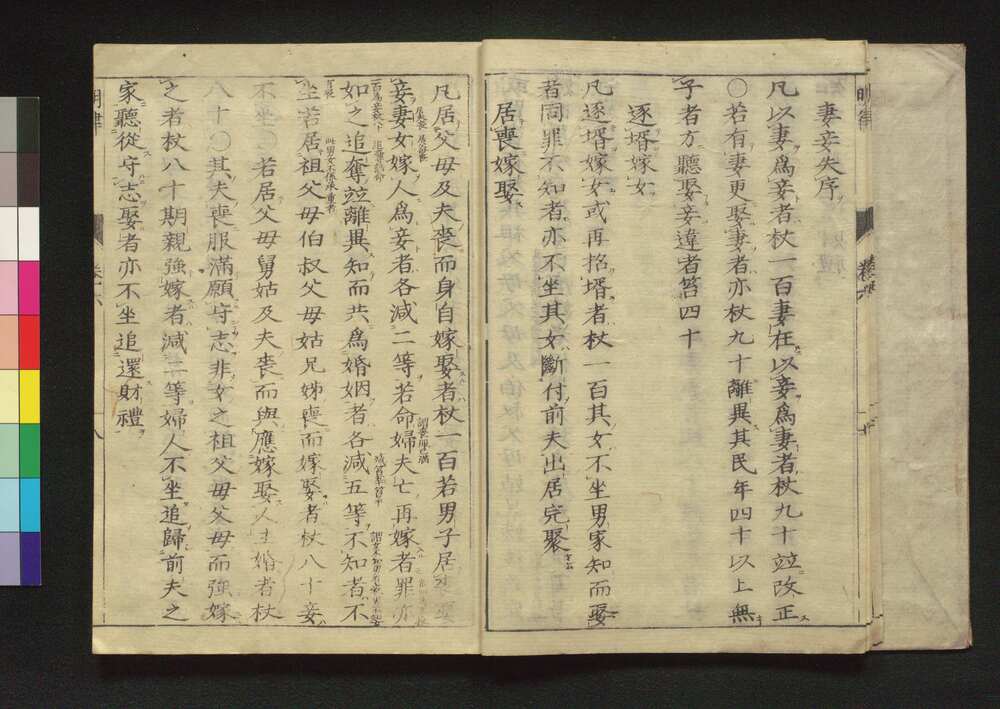 妻妾失序
凡以妻爲妾者杖一百妻在以妾爲妻者杖九十竝改正
○若有妻更娶妻者亦杖九十離異其民年四十以上無
子者方聽娶妾違者笞四十
逐壻嫁女
凡逐壻嫁女或再招壻者杖一百其女不坐男家知而娶
者同罪不知者亦不坐其女斷付前夫出居完聚
居喪嫁娶
凡居父母及夫喪而身自嫁娶者杖一百若男子居喪娶
妾妻女嫁人爲妾者各減二等若命婦夫亡再嫁者罪亦
如之追奪竝離異知而共爲婚姻者各減五等不知者不
坐若居祖父母伯叔父母姑兄姊喪而嫁娶者杖八十妾
不坐○若居父母舅姑及夫喪而與應嫁娶人主婚者杖
八十○其夫喪服滿願守志非女之祖父母父母而強嫁
之者杖八十期親強嫁者減二等婦人不坐追歸前夫之
家聽從守志娶者亦不坐追還財禮
明律
卷六
八